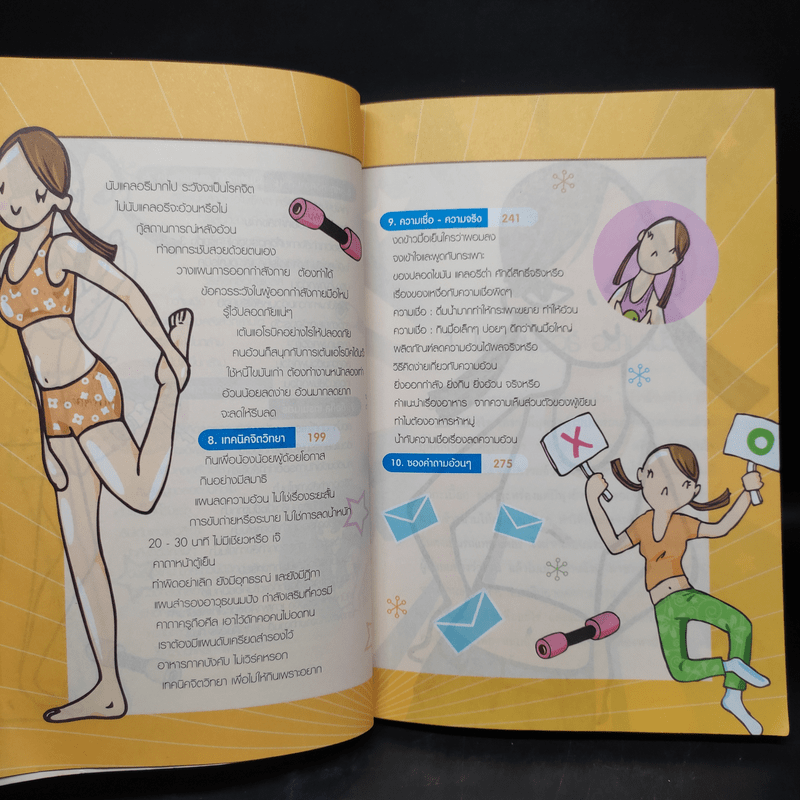 นับแคลอรีมากไป ระวังจะเป็นโรคจิต
ไม่นับแคลอรีจะอ้วนหรือไม่
กู้สถานการณ์หลังอ้วน
ทำอกกระชับสวยด้วยตนเอง
วางแผนการออกกำลังกาย ต้องทำได้
ข้อควรระวังในผู้ออกกำลังกายมือใหม่
รู้ไว้ปลอดภัยแน่ๆ
เต้นแอโรบิคอย่างไรให้ปลอดภัย
คนอ้วนก็สนุกกับการเต้นแอโรบิคได้
ใช้หนี้ไขมันเก่า ต้องทำงานหนักสอง
อ้วนน้อยลดง่าย อ้วนมากลดยาก
จะลดให้รีบลด
8. เทคนิคจิตวิทยา 199
กินเพื่อน้องน้อยผู้ด้อยโอกาส
กินอย่างมีสมาธิ
แผนลดความอ้วน ไม่ใช่เรื่องระยะสั้น
การขับถ่ายหรือระบาย ไม่ใช่การลดน้ำหนัก
20 - 30 นาที ไม่มีเชียวหรือ เจ๊
คาถาหน้าตู้เย็น
ทำผิดอย่าเลิก ยังมีอุทธรณ์ และยังมีฎีกา
แผนสำรองอาวุธขนมปัง กำลังเสริมที่ควรมี
คาถาครูถือศีล เอาไว้ดักคอคนไม่อดทน
เราต้องมีแผนดับเครียดสำรองไว้
อาหารภาคบังคับ ไม่เวิร์คหรอก
เทคนิคจิตวิทยา เพื่อไม่ให้กินเพราะอยาก
9. ความเชื่อ - ความจริง 241
งดข้าวมื้อเย็นใครว่าผอมลง
จงเข้าใจและพูดกับกระเพาะ
ของปลอดไขมัน แคลอรีต่ำ ศักดิ์สิทธิ์จริงหรือ
เรื่องของเหงื่อกับความเชื่อผิดๆ
ความเชื่อ : ดื่มน้ำมากทำให้กระเพาะขยาย ทำให้อ้วน
ความเชื่อ : กินมื้อเล็กๆ บ่อยๆ ดีกว่ากินมื้อใหญ่
ผลิตภัณฑ์ลดความอ้วนได้ผลจริงหรือ
วิธีคิดง่ายเกี่ยวกับความอ้วน
ยิ่งออกกำลัง ยิ่งกิน ยิ่งอ้วน จริงหรือ
คำแนะนำเรื่องอาหาร จากความเห็นส่วนตัวของผู้เขียน
ทำไมต้องอาหารห้าหมู่
น้ำกับความเชื่อเรื่องลดความอ้วน
10. ซองคำถามอ้วนๆ 275